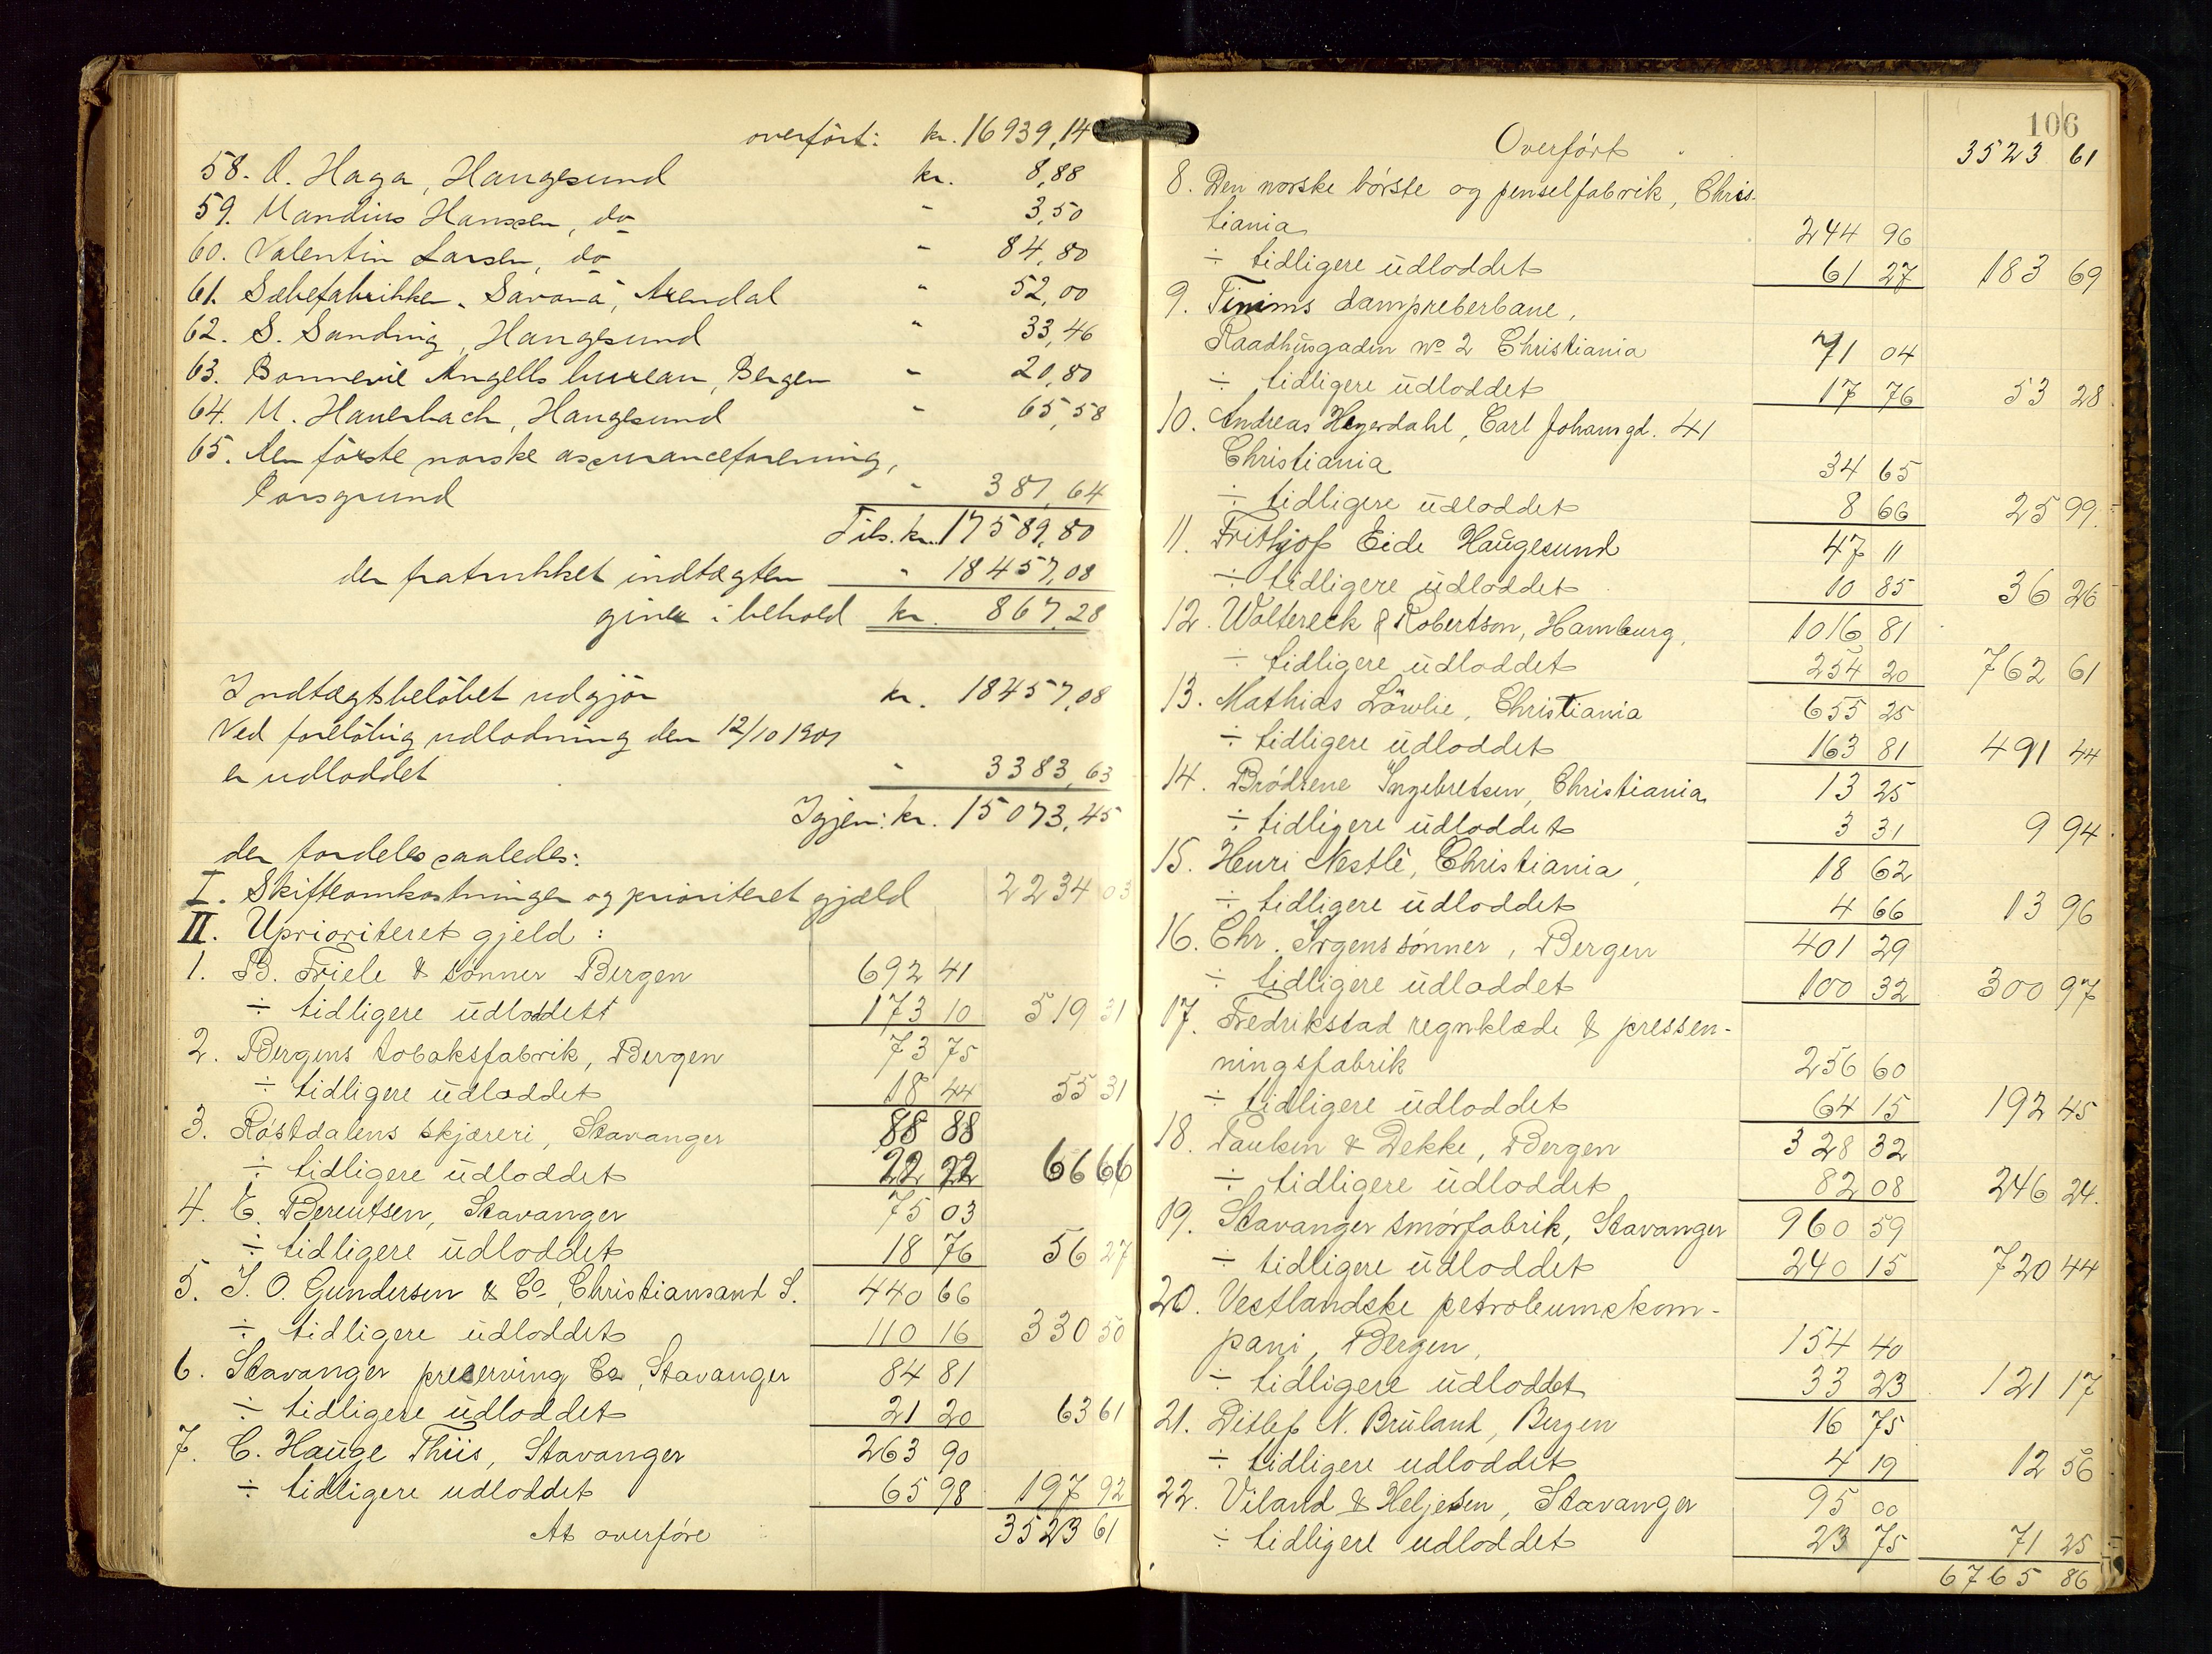 overført: kr. 16939,14
58. O. Haga, Haugesund kr. 8,88
59. Mandius Hanssen, do " 3,50
60. Valentin Larsen, do " 84,80
61. Sæbefabrikken "Savona", Arendal " 52,00
62. S. Sanding, Haugesund " 33,46
63. Bonnevie Angells bureau, Bergen " 20,80
64. M. Hauerbach, Haugesund " 65,58
65. Den første norske assuranceforening,
Porsgrund " 381,64
Tils. kr. 17589,80
der fratrukket indtægten " 18457,08
giver i behold kr. 867,28
Indtægtsbeløbet udgjør kr. 18457,08
Ved foreløbig udlodning den 12/10 1901
er udloddet " 3383,63
Igjen: kr. 15073,45
der fordeles saaledes:
I. Skifteomkostninger og prioriteret gjæld 2234 03
II. Uprioriteret gjeld:
1. B. Friele & sønner Bergen 692 41
÷ tidligere udloddett 173 10 519 31
2. Bergens tobaksfabrik, Bergen 73 75
÷ tidligere udloddet 18 44 55 31
3. Røstdalens skjæreri, Stavanger 88 88
÷ tidligere udloddet 22 22 66 66
4. C. Berentsen, Stavanger 75 03
÷ tidligere udloddet 18 76 56 27
5. J. O. Gundersen & Co, Christiansand S. 440 66
÷ tidligere udloddet 110 16 330 50
6. Stavanger preserving Co, Stavanger 84 81
÷ tidligere udloddet 21 20 63 61
7. C. Hauge Thiis, Stavanger 263 90
÷ tidligere udloddet 65 98 197 92
At overføre 3523 61
106
Overført 3523 61
8. Den norske børste og penselfabrik, Chris-
tiania 244 96
÷ tidligere udloddet 61 27 183 69
9. dampreberbane,
Raadhusgaden No 2 Christiania 71 04
÷ tidligere udloddet 17 76 53 28
10. Andreas Heyerdahl, Carl Johansgd. 41
Christiania 34 65
÷ tidligere udloddet 8 66 25 99
11. Frithjof Eide Haugesund 47 11
÷ tidligere udloddet 10 85 36 26
12. Woltereck & Robertson, Hamburg, 1016 81
÷ tidligere udloddet 254 20 762 61
13. Mathias Löwlie, Christiania 655 25
÷ tidligere udloddet 163 81 491 44
14. Brødrene Ingebretsen, Christiania 13 25
÷ tidligere udloddet 3 31 9 94
15. Henri Nestlè, Christiania, 18 62
÷ tidligere udloddet 4 66 13 96
16. Chr. Irgens sønner, Bergen 401 29
÷ tidligere udloddet 100 32 300 97
17. Fredrikstad regnklæde & pressen-
ningsfabrik 256 60
÷ tidligere udloddet 64 15 192 45
18. Paulsen & Dekke, Bergen 328 32
÷ tidligere udloddet 82 08 246 24
19. Stavanger smørfabrik, Stavanger 960 59
÷ tidligere udloddet 240 15 720 44
20. Vestlandske petroleumskom-
pani, Bergen, 154 40
÷ tidligere udloddet 33 23 121 17
21. Ditlef N. Bruland, Bergen 16 75
÷ tidligere udloddet 4 19 12 56
22. Viland & Heljesen, Stavanger 95 00
÷ tidligere udloddet 23 75 71 25
6765 86